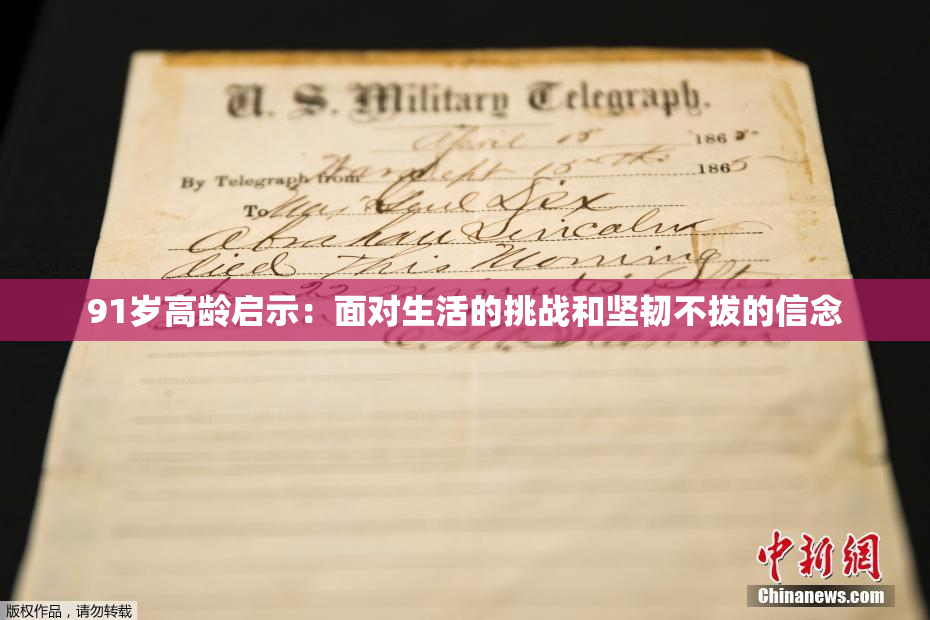 U. S. Military Telegraph.
April 15 1865
By Telegraph from War Dept 15th 1865
To Maj Genl Dix
Abraham Lincoln
died This Morning
at 22 minutes after
91岁高龄启示：面对生活的挑战和坚韧不拔的信念
E. M. Stanton
中新网
Chinanews.com
版权作品，请勿转载